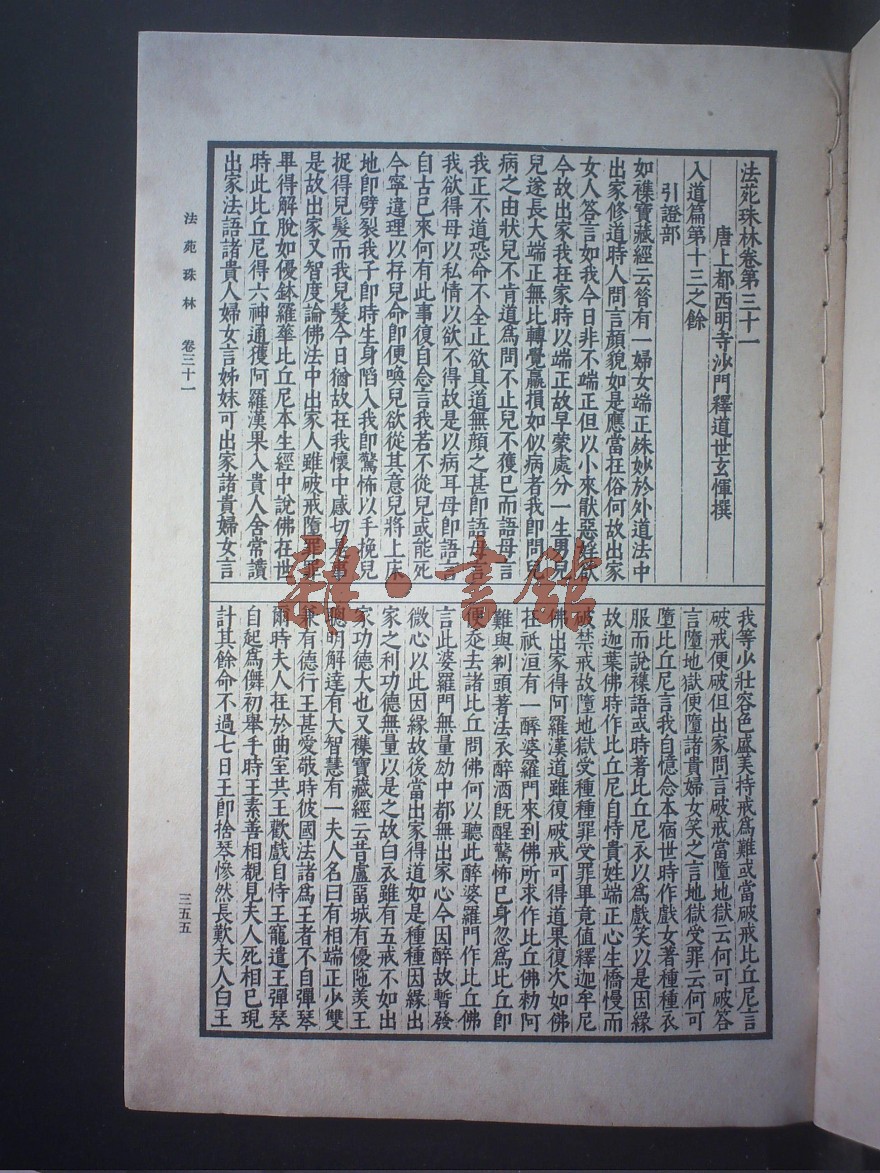 法苑珠林卷第三十一
唐上都西明寺沙門釋道世玄惲撰
入道篇第十三之餘
引證部
如襍寶藏經云昝有一婦女端正姝妙於外道法中
出家修道時人問言顏貌如是應當在俗何故出家
女人答言如我今日非不端正但以小來猒惡婬欲
今故出家我在家時以端正故早蒙處分一生男兒
兒遂長大端正無比轉覺羸損如似病者我即問兒
病之由狀兒不肯道爲問不止兒不獲已而語母言
我正不道恐命不全止欲具道無顏之甚即語母言
我欲得母以私情以欲不得故是以病耳母即語言
自古已來何有此事復自念言我若不從兒或能死
今寧違理以存兒命即便喚兒欲從其意兒將上床
地即劈裂我子即時生身陷入我即驚怖以手挽兒
捉得兒髮而我兒髮今日猶故在我懷中感切是事
是故出家又智度論佛法中出家人雖破戒墮罪罪
畢得解脫如優鉢羅華比丘尼本生經中說佛在世
時此比丘尼得六神通獲阿羅漢果入貴人舍常讚
出家法語諸貴人婦女言姊妹可出家諸貴婦女言
我等少壯容色盛美持戒爲難或當破戒比丘尼言
破戒便破但出家問言破戒當墮地獄云何可破答
言墮地獄便墮諸貴婦女笑之言地獄受罪云何可
墮比丘尼言我自憶念本宿世時作戲女著種種衣
服而說襍語或時著比丘尼衣以爲戲笑以是因緣
故迦葉佛時作比丘尼自恃貴姓端正心生憍慢而
破禁戒故墮地獄受種種罪受罪畢竟值釋迦牟尼
佛出家得阿羅漢道雖復破戒可得道果復次如佛
在祇洹有一醉婆羅門來到佛所求作比丘佛勑阿
難與剃頭著法衣醉酒旣醒驚怖已身忽爲比丘即
便走去諸比丘問佛何以聽此醉婆羅門作比丘佛
言此婆羅門無量劫中都無出家心今因醉故暫發
微心以此因緣故後當出家得道如是種種因緣出
家之利功德無量以是之故白衣雖有五戒不如出
家功德大也又襍寶藏經云昔盧畱城有優陁羨王
聰明解達有大智慧有一夫人名曰有相端正少雙
兼有德行王甚愛敬時彼國法諸爲王者不自彈琴
爾時夫人在於曲室共王歡戲自恃王寵遣王彈琴
自起爲儛初舉手時王素善相覩見夫人死相已現
計其餘命不過七日王即捨琴慘然長歎夫人白王
法苑珠林 卷三十一
三五五
雜·書館